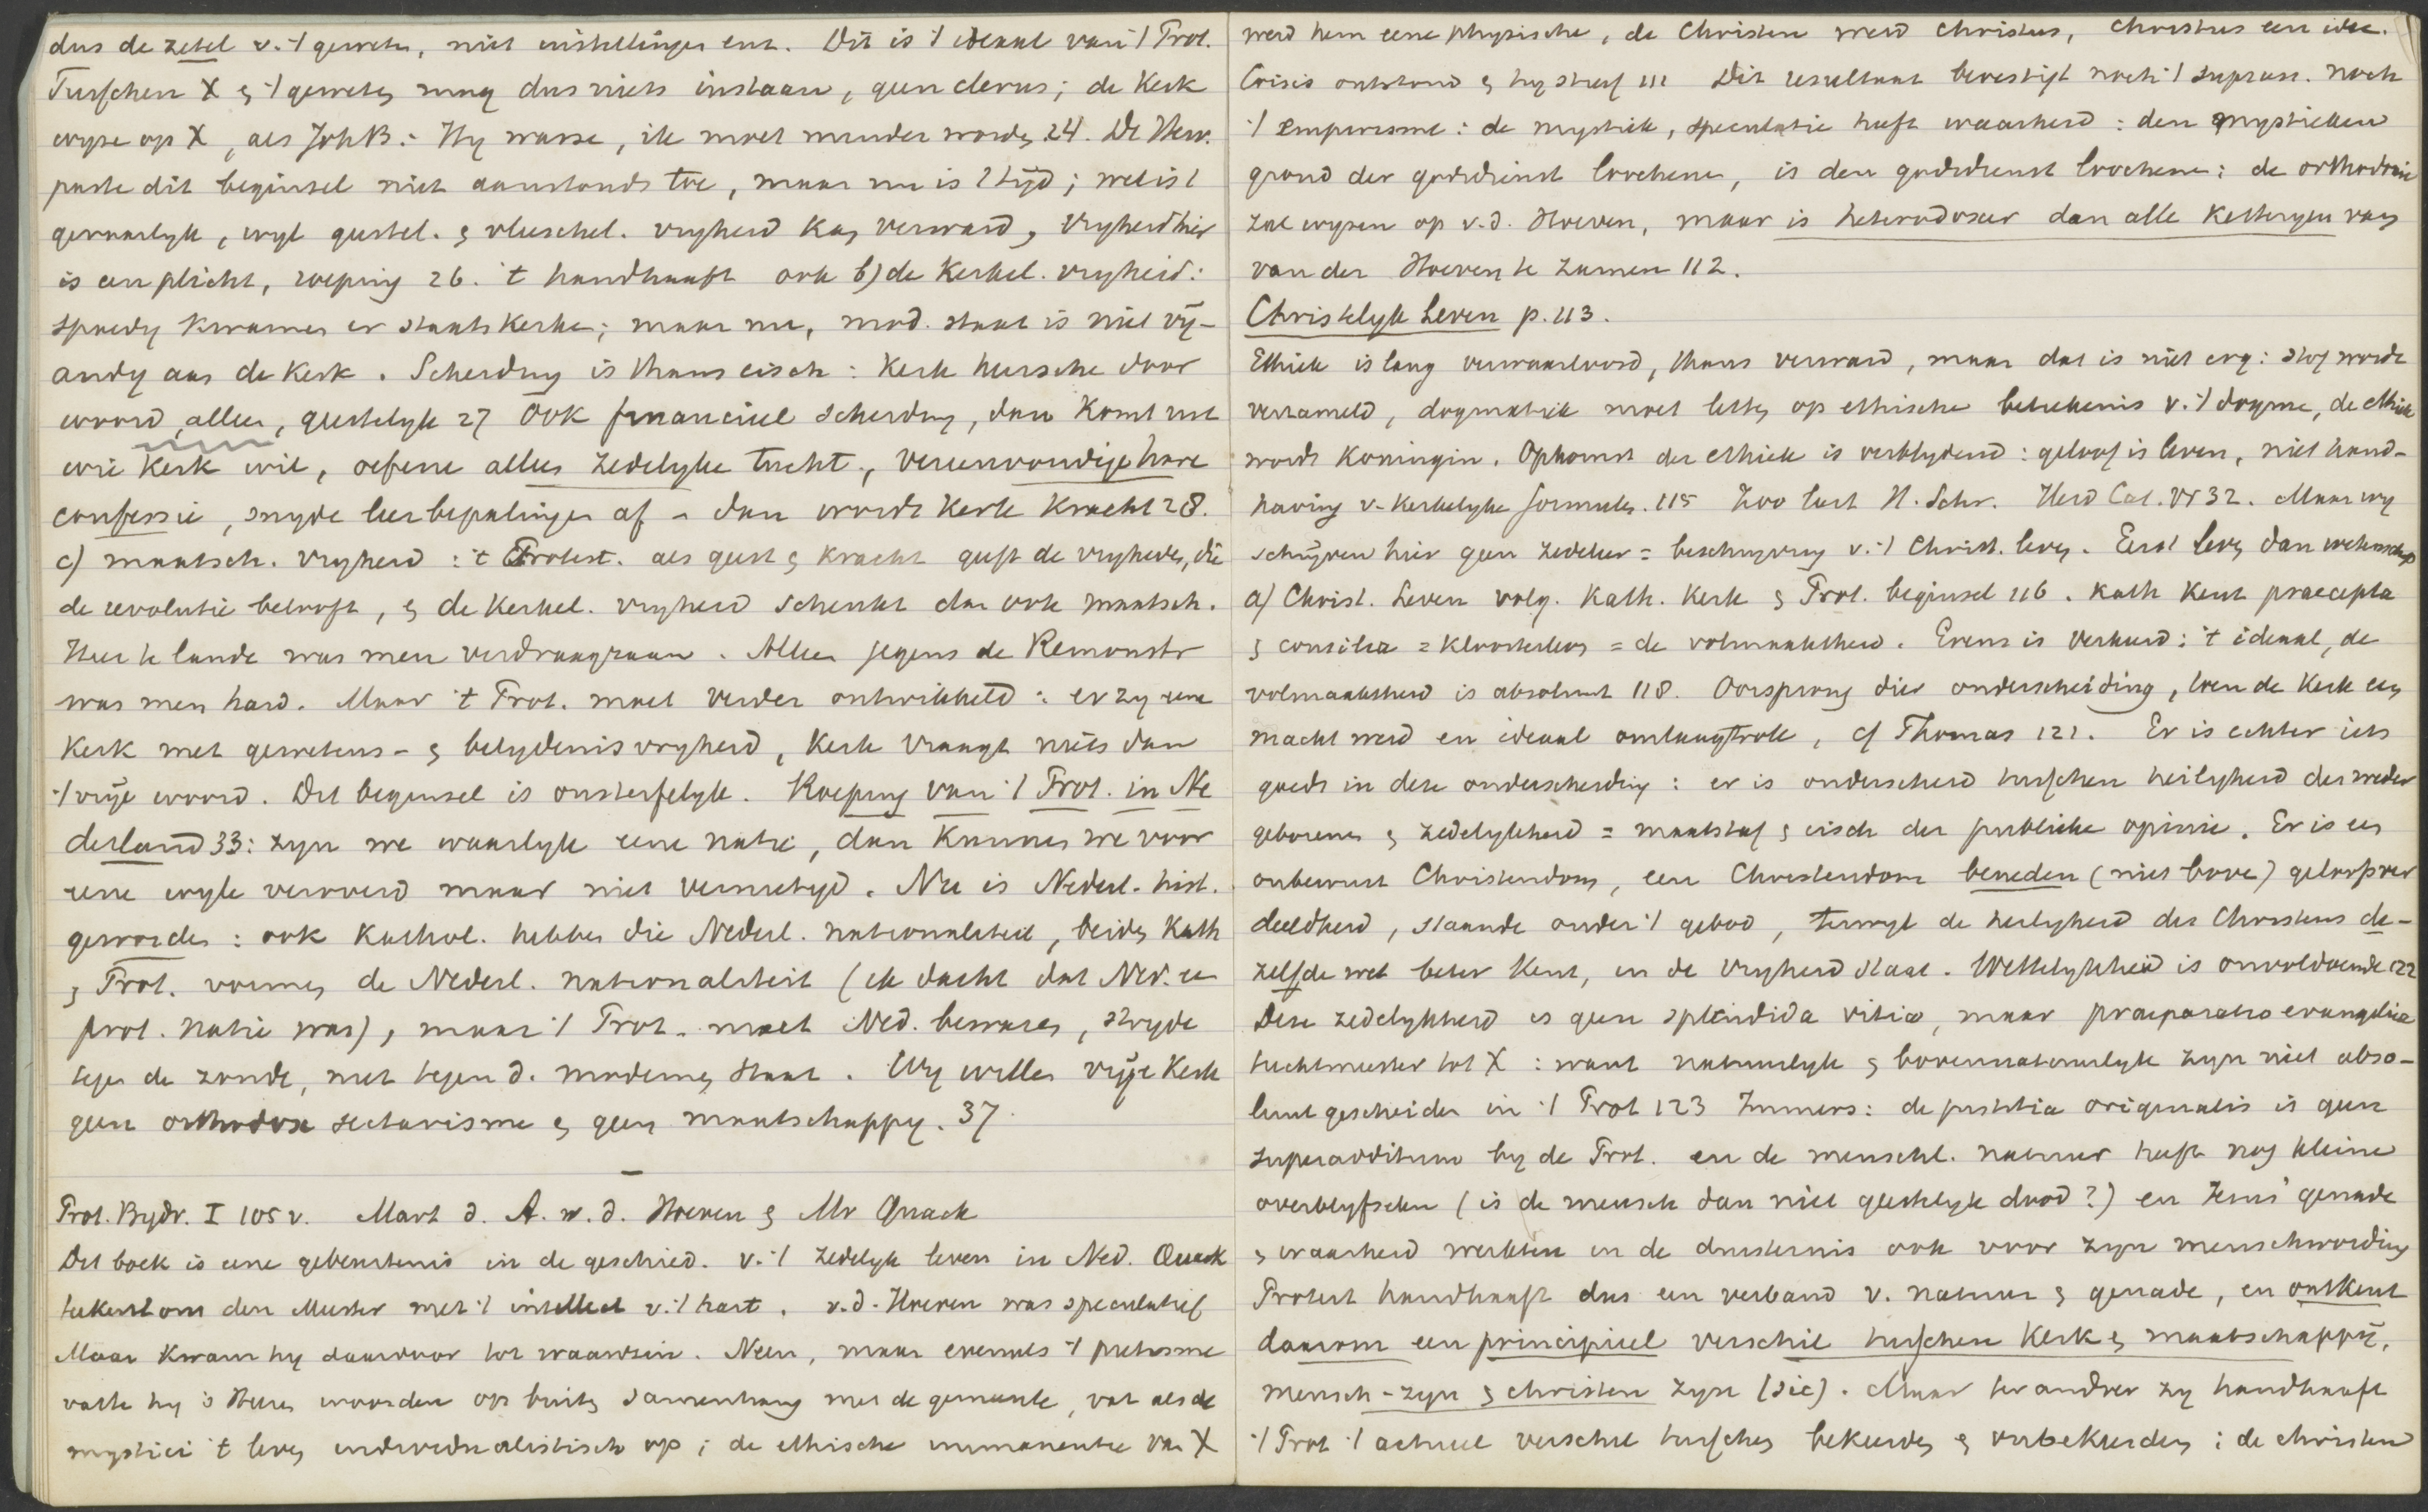 dus de zetel v. 't geweten, niet instellingen enz. Dit is 't ideaal van 't Prot.
Tusschen X & 't geweten mag dus niets instaan, geen clerus; de Kerk
wyze op X, als Joh B.: Hy wasse, ik moet minder worden 24. De Herv.
paste dit beginsel niet aanstonds toe, maar nu is 't tyd; wel is 't
gevaarlyk, wyl geestel. & vleeschel. vryheid kan verward, vryheid hier
is een plicht, roeping 26. 't handhaaft ook b) de Kerkel. vryheid:
spoedig kwamen er staatskerken; maar nu, mod. staat is niet vy-
andig aan de Kerk. Scheiding is thans eisch: Kerk heersche door
woord, alleen, geestelyk 27 Ook financieel scheiding, dan komt in de
wie Kerk wil, oefene alleen zedelyke tucht, vereenvoudige hare
confessie, snyde leerbepalingen af - dan wordt Kerk Kracht 28.
c) maatsch. vryheid: 't Protest. als geest & kracht geeft de vryheden, die
de revolutie belooft, & de Kerkel. vryheid schenkt dan ook maatsch.
Hier te lande was men verdraagzaam. Alleen jegens de Remonstr
was men hard. Maar 't Prot. moet verder ontwikkeld: er zy eene
Kerk met gewetens- & belydenisvryheid, Kerk vraagt niets dan
't vrye woord. Dit beginsel is onsterfelyk. Roeping van 't Prot. in Ne
derland 33: zyn we waarlyk eene natie, dan kunnen we voor
eene wyle veroverd maar niet vernietigd. Nu is Nederl. hist.
geworden: ook Kathol. hebben die Nederl. nationaliteit, beiden Kath
& Prot. vormen de Nederl. nationaliteit (ik dacht dat Ned. ee
prot. natie was), maar 't Prot. moet Ned. bewaren, stryde
tegen de zonde, niet tegen d. modernen staat. Wy willen vrye Kerk
geen orthodox sectarisme & geen maatschappy. 37.
Prot. Bydr. I 105 v. Mart d. A. v. d. Hoeven & Mr Quack
Dit boek is eene gebeurtenis in de geschied. v. 't zedelyk leven in Ned. Quack
teekent ons den Meester met 't intellect v. 't hart. v. d. Hoeven was speculatief
Maar kwam hy daardoor tot waanzin. Neen, maar evenals 't pietisme
vatte hy 's Heeren woorden op buiten samenhang met de gemeente, vat als de
mystici 't leven individualistisch op; de ethische immanentie van X
werd hem eene physische, de Christen werd Christus, Christus een idee.
Crisis ontstond & hy stierf 111 Dit resultaat bevestigt noch 't supran. noch
't empirisme: de mystiek, speculatie heeft waarheid: den mystieken
grond der godsdienst loochenen, is den godsdienst loochenen: de orthodoxie
zal wyzen op v. d. Hoeven, maar is heterodoxer dan alle ketteryen van
van der Hoeven te zamen 112.
Christelyk Leven p. 113.
Ethiek is lang verwaarloosd, thans verward, maar dat is niet erg: stof worde
verzameld, dogmatiek moet letten op ethische beteekenis v. 't dogma, de ethiek
wordt Koningin. Opkomst der ethiek is verblydend: geloof is leven, niet hand-
having v. Kerkelyke formules. 115 Zoo leert H. Schr. Heid Cat. Vr 32. Maar wy
schryven hier geen zedeleer = beschryving v. 't Christ. leven. Eerst leven dan wetenschap
a) Christ. Leven volg. Kath. Kerk & Prot. beginsel 116. Kath kent praecepta
& consilia = kloosterleven = de volmaaktheid. Evenz is verkeerd: 't ideaal, de
volmaaktheid is absoluut 118. Oorsprong dier onderscheiding, toen de Kerk een
macht werd en ideaal omlaagtrok, cf Thomas 121. Er is echter iets
goeds in deze onderscheiding: er is onderscheid tusschen heiligheid der weder
geborenen & zedelykheid = maatstaf & eisch der publieke opinie. Er is een
onbewust Christendom, een Christendom beneden (niet boven) geloofsver
deeldheid, staande onder 't gebod, terwyl de heiligheid des Christens de-
zelfde wet beter kent, en de vryheid staat. Wettelykheid is onvoldoende 122
Deze zedelykheid is geen splendida vitia, maar praeparatio evangelica
tuchtmeester tot X: want natuurlyk & bovennatuurlyk zyn niet abso-
luut gescheiden in 't Prot 123 Immers: de justitia originalis is geen
superadditum by de Prot. en de menschl. natuur heeft nog kleine
overblyfselen (is de mensch dan niet geestelyk dood?) en Jezus' genade
& waarheid werkten in de duisternis ook voor zyn menschwording
Protest handhaaft dus een verband v. natuur & genade, en ontkent
daarom een principieel verschil tusschen Kerk & maatschappy,
mensch-zyn & christen zyn (sic). Maar ter andrer zy handhaaft
't Prot 't actueel verschil tusschen bekeerden & onbekeerden; de christen